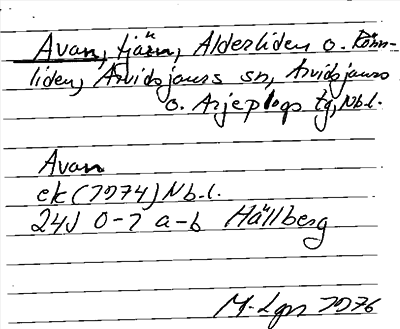 Avan, tjärn, Alderliden o. Rönn-
liden, Arvidsjaurs sn, Arvidsjaurs
o. Arjeplogs tg, Nb.l.
Avan
ek (1974) Nb.l.
24J 0-1 a-b Hällberg
M. Lgn 1976